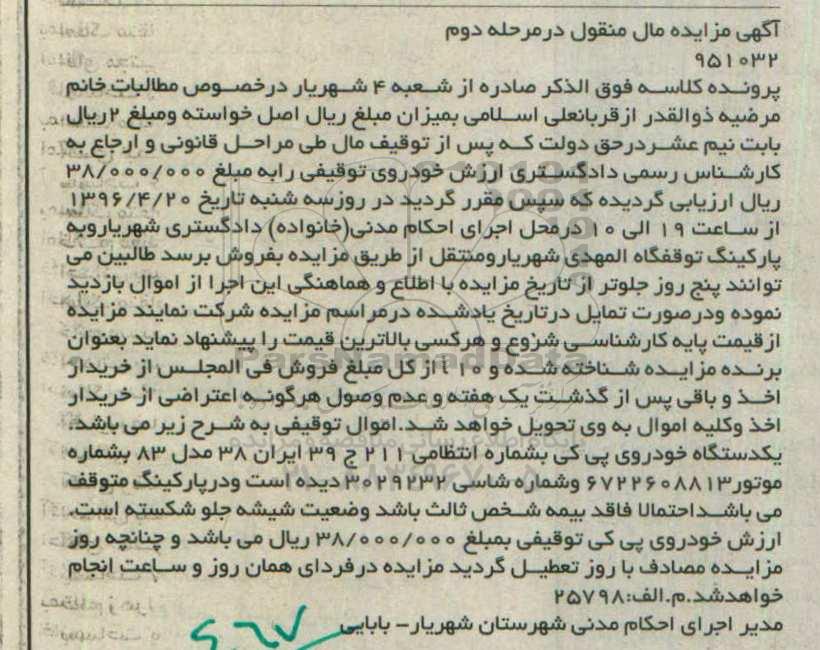 آگهی مزایده مال منقول درمرحله دوم
۹۵۱۰۳۲
پرونده کلاسه فوق الذکر صادره از شعبه ۴ شهریار درخصوص مطالبات خانم
مرضیه ذوالقدر ازقربانعلی اسلامی بمیزان مبلغ ریال اصل خواسته ومبلغ ۲ریال
بابت نیم عشردرحق دولت که پس از توقیف مال طی مراحل قانونی و ارجاع به
کارشناس رسمی دادگستری ارزش خودروی توقیفی رابه مبلغ ۳۸/۰۰۰/۰۰۰
ریال ارزیابی گردیده که سپس مقرر گردید در روزسه شنبه تاریخ ۱۳۹۶/۴/۲۰
از ساعت ۱۹ الی ۱۰ درمحل اجرای احکام مدنی(خانواده) دادگستری شهریاروبه
پارکینگ توقفگاه المهدی شهریارومنتقل از طریق مزایده بفروش برسد طالبین می
توانند پنج روز جلوتر از تاریخ مزایده با اطلاع و هماهنگی این اجرا از اموال بازدید
نموده ودرصورت تمایل درتاریخ یادشده درمراسم مزایده شرکت نمایند مزایده
ازقیمت پایه کارشناسی شزوع و هرکسی بالاترین قیمت را پیشنهاد نماید بعنوان
برنده مزایده شناخته شده و ۱۰ از کل مبلغ فروش فی المجلس از خریدار
اخذ و باقی پس از گذشت یک هفته و عدم وصول هرگونه اعتراضی از خریدار
اخذ وکلیه اموال به وی تحویل خواهد شد.اموال توقیفی به شرح زیر می باشد.
یکدستگاه خودروی پی کی بشماره انتظامی ۲۱۱ ج ۳۹ ایران ۳۸ مدل ۸۳ بشماره
موتور۶۷۲۲۶۰۸۸۱۳ وشماره شاسی ۳۰۲۹۲۳۲ دیده است ودرپارکینگ متوقف
می باشداحتمالا فاقد بیمه شخص ثالث باشد وضعیت شیشه جلو شکسته است.
ارزش خودروی پی کی توقیفی بمبلغ ۳۸/۰۰۰/۰۰۰ ریال می باشد و چنانچه روز
مزایده مصادف با روز تعطیل گردید مزایده درفردای همان روز و ساعت انجام
خواهدشد.م.الف:۲۵۷۹۸
مدیر اجرای احکام مدنی شهرستان شهریار– بابایی
ParsNamadData